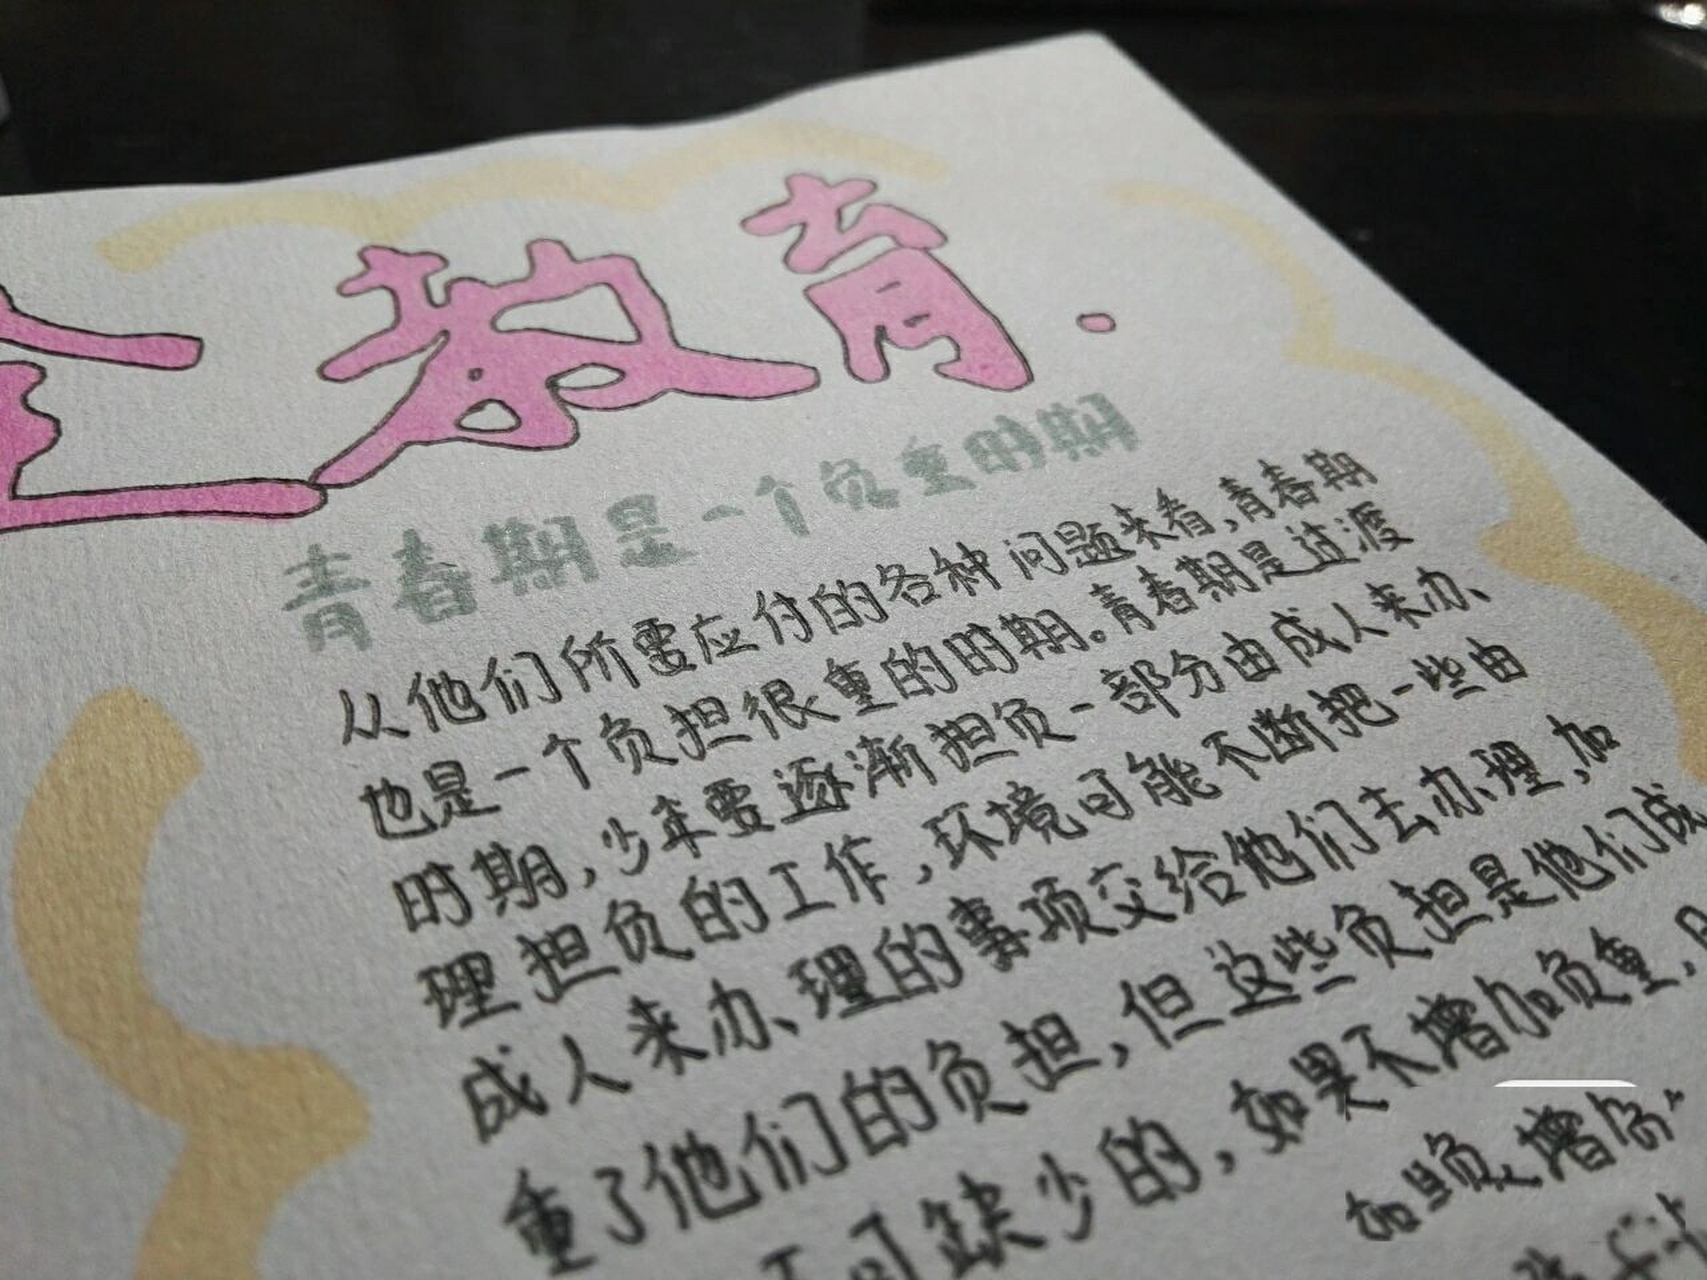 教育.
青春期是一个负重时期
从他们所要应付的各种问题来看,青春期
也是一个负担很重的时期。青春期是过渡
时期,少年要逐渐担负一部分由成人来办、
理担负的工作,环境可能不断把一些由
成人来办、理的事项交给他们去办理,加
重了他们的负担,但这些负担是他们成
不可缺少的,如果不增加负重,